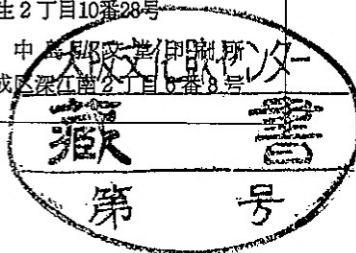 生2丁目10番28号
中島弘文堂印刷所
成区深江南2丁目6番8号
大阪文化財センター
藏書
第 号